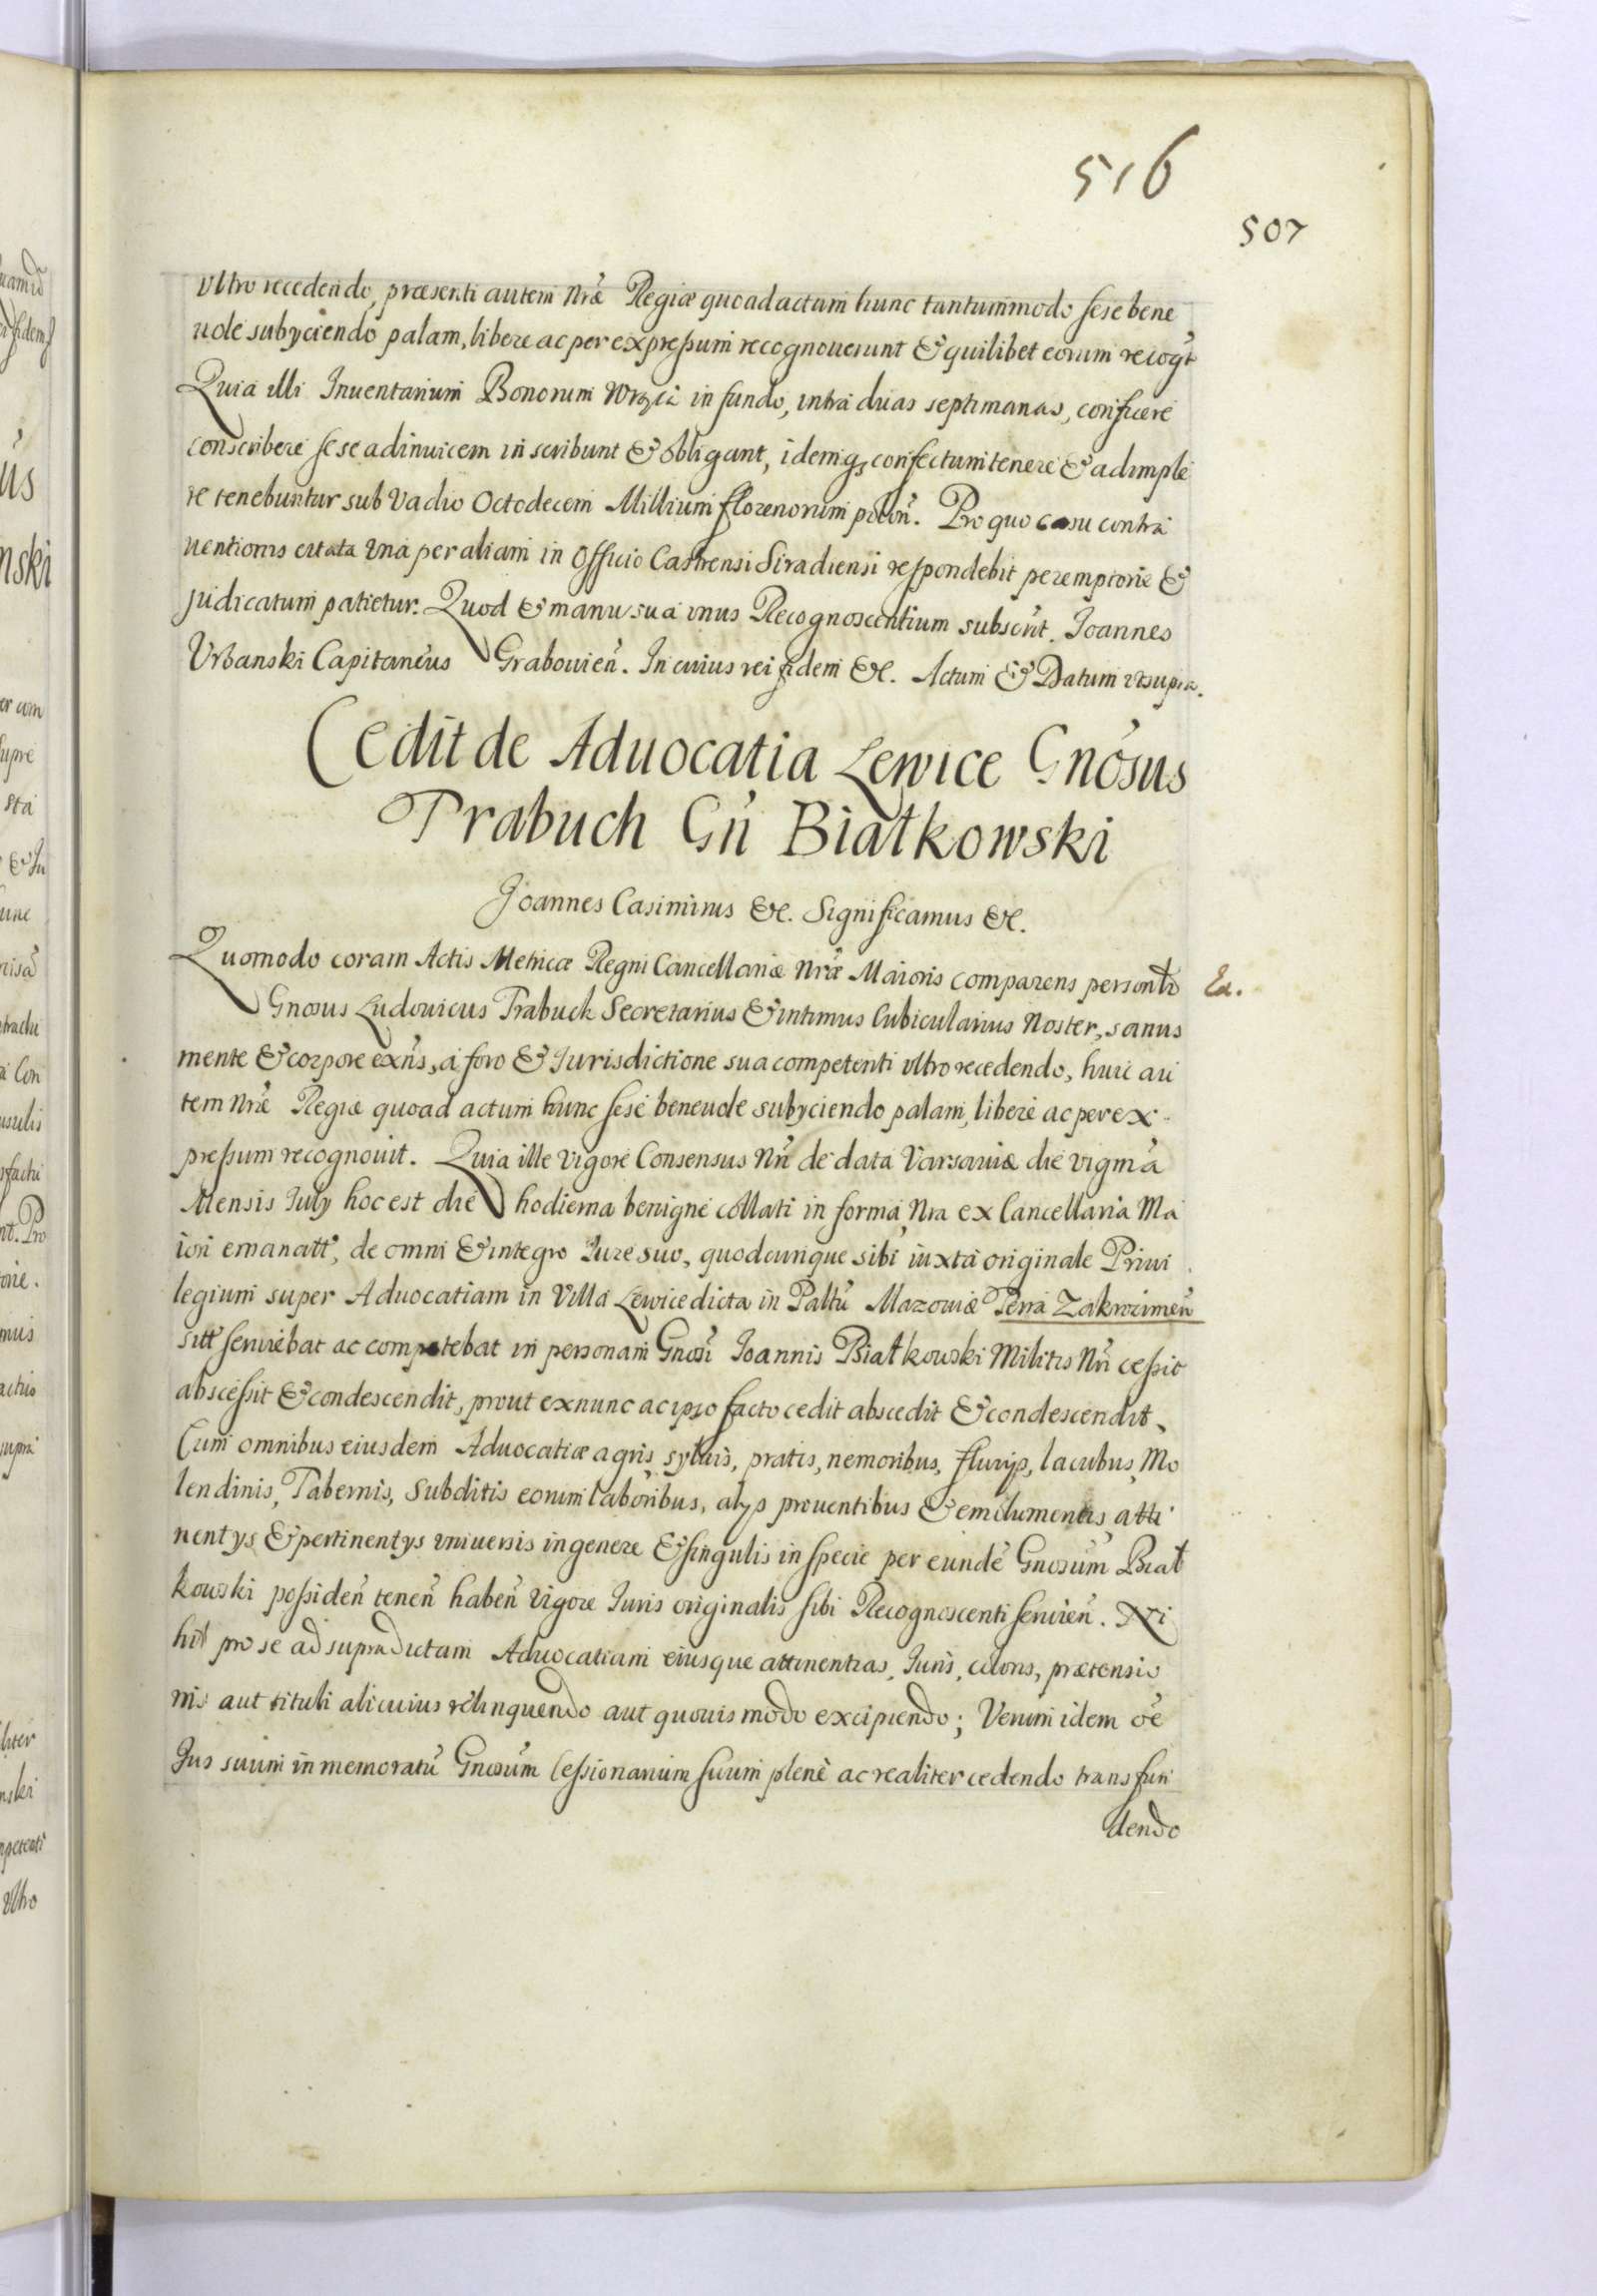 516
507
vltro recedendo, præsenti autem Nræ Regiæ quoad actum hunc tantummodo sese bene
uole subyciendo palam, libere ac per expressum recognouerunt & quilibet eorum recogt
Quia illi Inuentarium Bonorum in fundo, intra duas septimanas, conficere
conscribere sese adinuicem inscribunt & obligant, idemq; confectum tenere & adimple
re tenebuntur sub Vadio Octodecem Millium florenorum polon. Pro quo casu contra
uentionis citata vna per aliam in Officio Castrensi Siradiensi respondebit peremptorie &
judicatum patietur. Quod & manu sua vnus Recognoscentium subscrit. Joannes
Urbanski Capitaneus Grabouien. In cuius rei fidem &c. Actum & Datum vtsupra.
Cedit de Aduocatia Lewice Gnosus
Trabuch Gn Białkowski
Joannes Casimirus &c. Significamus &c.
Quomodo coram Actis Metricæ Regni Cancellariæ Nræ Maioris comparens personlr
Ex.
Gnosus Ludouicus Trabuck Secretarius & intimus Cubicularius Noster, sanus
mente & corpore exns, a foro & Jurisdictione sua competenti vltro recedendo, huic au
tem Nræ Regiæ quoad actum hunc sese beneuole subyciendo palam, libere ac per ex-
pressum recognouit. Quia ille vigore Consensus Nri de data Varsauiæ die vigma
Mensis July hoc est die hodierna benigne collati in forma Nra ex Cancellaria Ma
iori emanatt, de omni & integro Jure suo, quodcunque sibi iuxta originale Priui
legium super Aduocatiam in Villa Lewice dicta in Paltu Mazouiæ Terra Zakrozimen
sitt seruiebat ac competebat in personam Gnosi Joannis Białkowski Militis Nri cessit
abscessit & condescendit, prout exnunc ac ipso facto cedit abscedit & condescendit,
Cum omnibus eiusdem Aduocatiæ agris syluis, pratis, nemoribus, fluvijs, lacubus, Mo
lendinis, Tabernis, Subditis eorum laboribus, alys prouentibus & emolumentis atti
nentys & pertinentys vniuersis in genere & singulis in specie per eunde Gnosum Biał
kowski possiden tenen haben vigore Juris originalis sibi Recognoscenti seruien. Ni
hil pro se ad supradictam Aduocatiam eiusque attinentias, Juris, ctionis, prætensio
nis aut tituli alicuius relinquendo aut quouis modo excipiendo; Verum idem oe
Jus suum in memoratu Gnosum Cessionarium suum plene ac realiter cedendo transfun
dendo